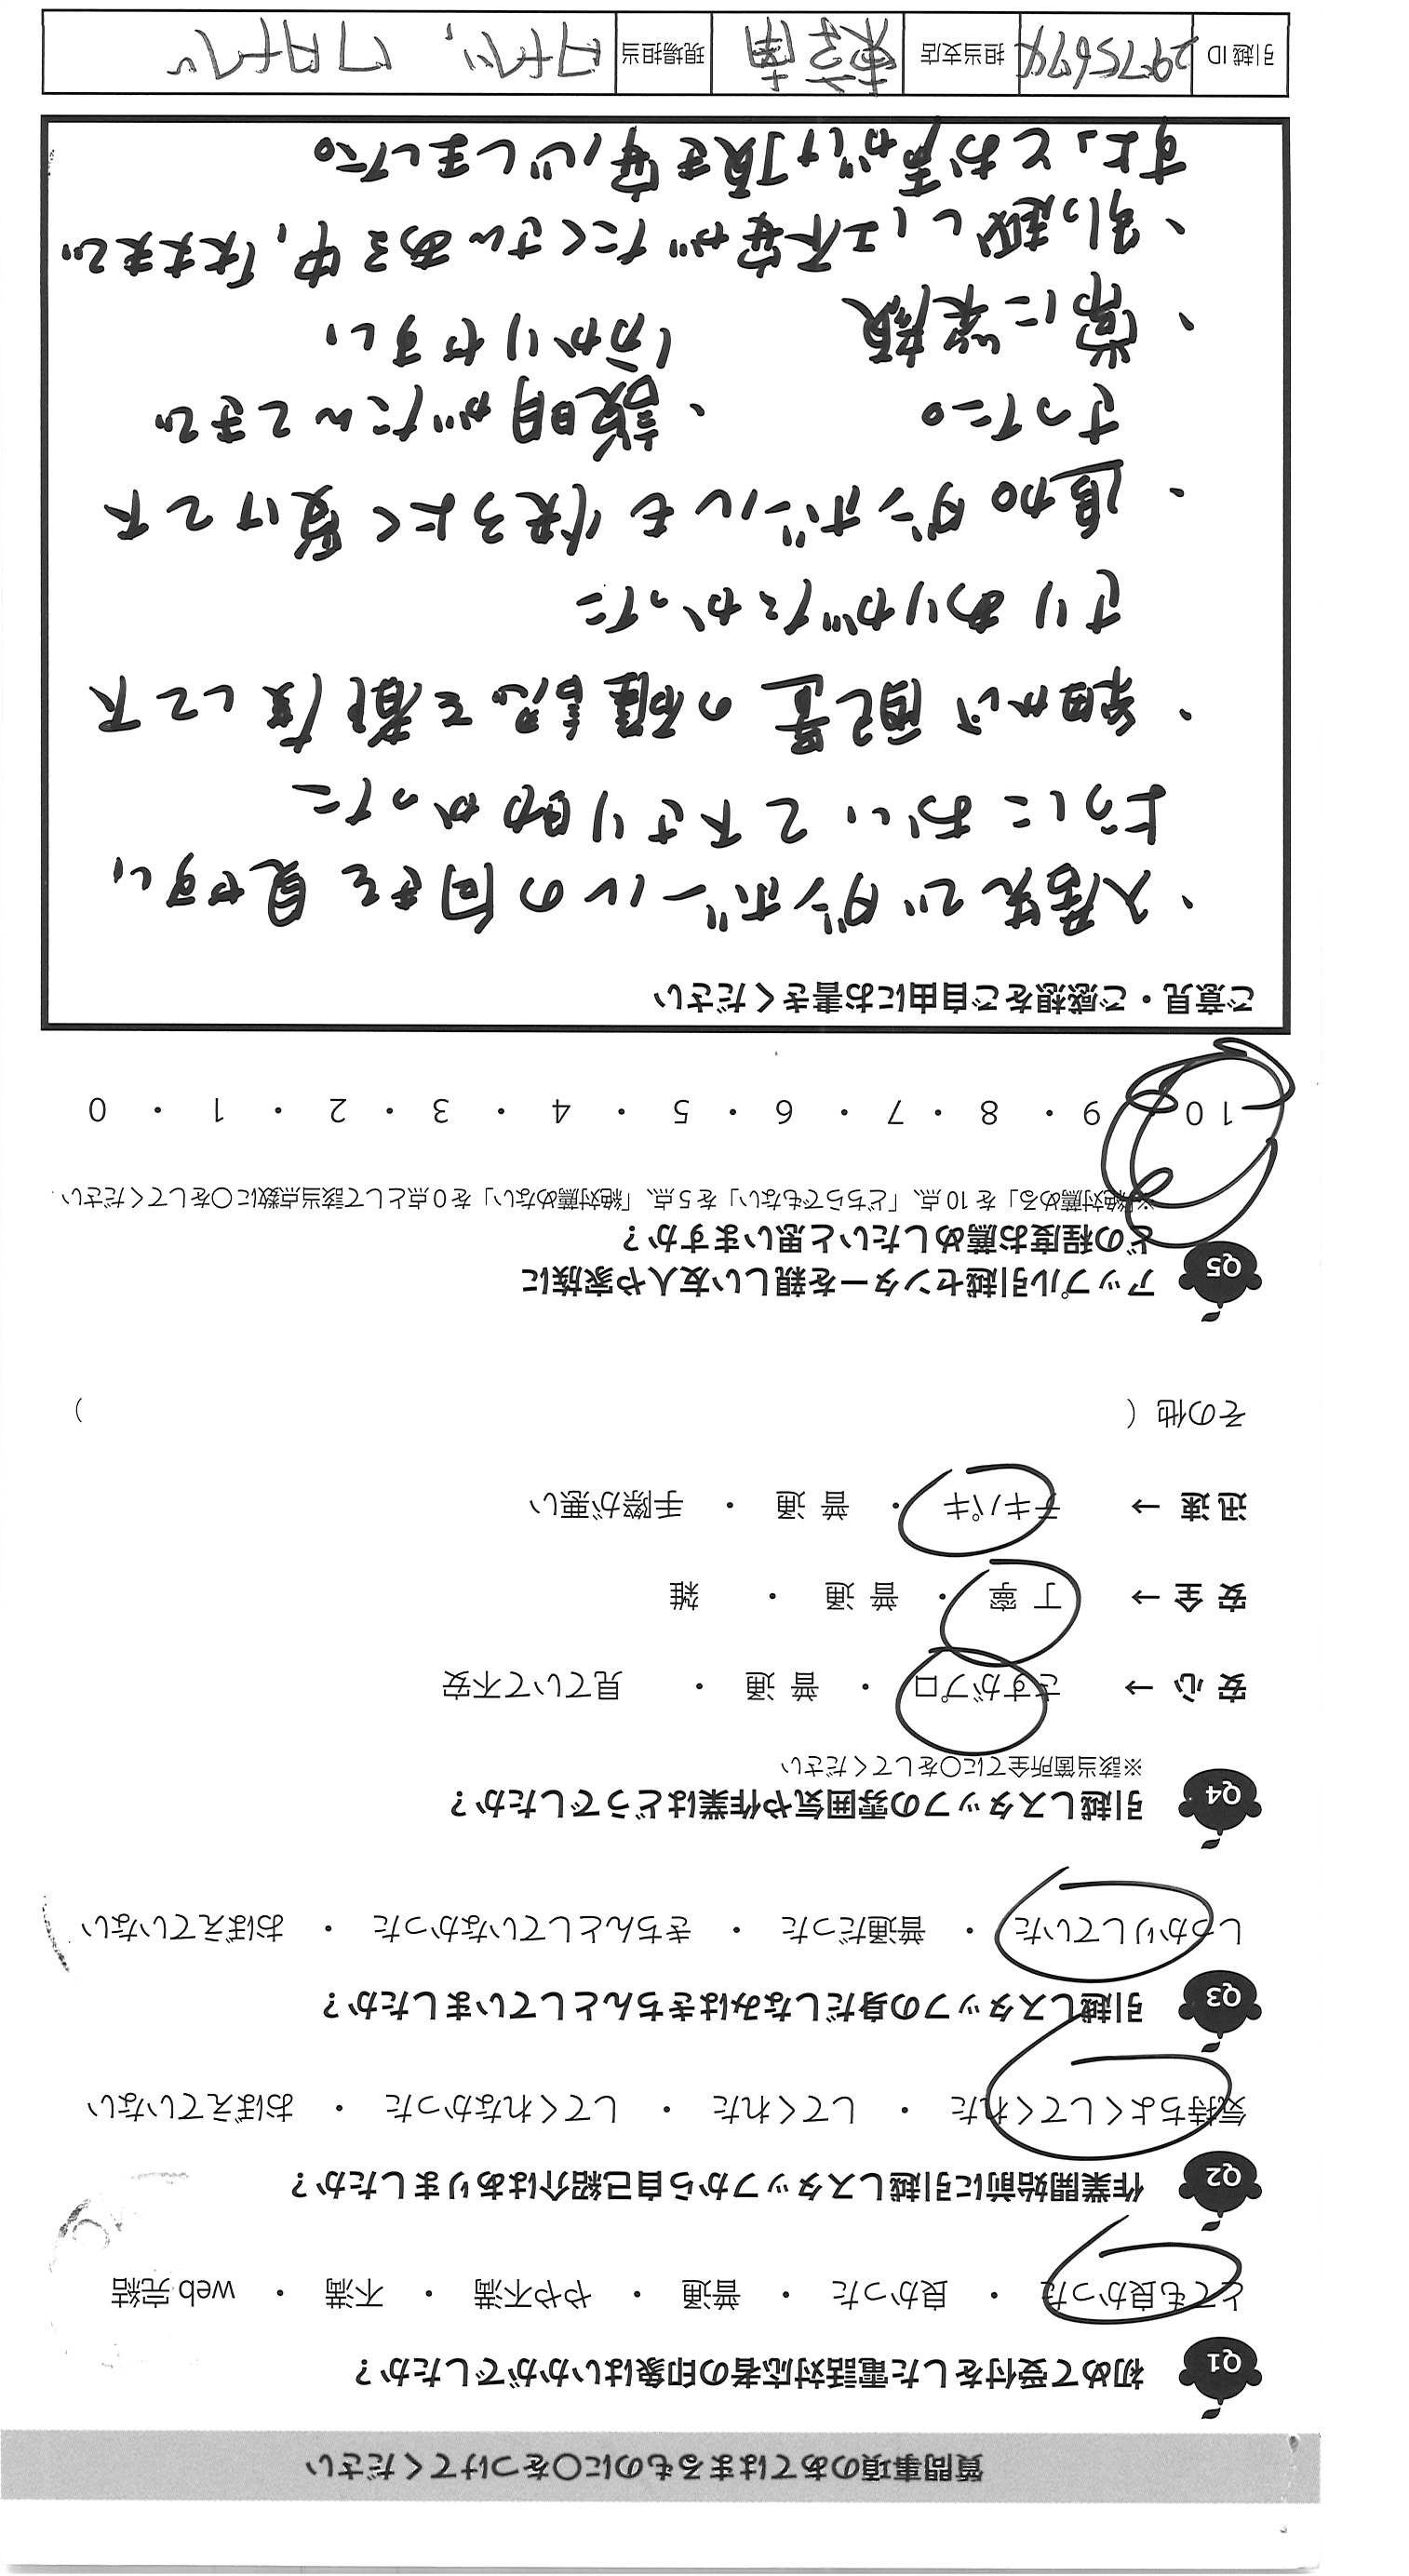 質問事項のあてはまるものに○をつけてください
Q1 初めて受付をした電話対応者の印象はいかがでしたか？
とても良かった ・ 良かった ・ 普通 ・ やや不満 ・ 不満 ・ web完結
Q2 作業開始前に引越しスタッフから自己紹介はありましたか？
気持ちよくしてくれた ・ してくれた ・ してくれなかった ・ おぼえていない
Q3 引越しスタッフの身だしなみはきちんとしていましたか？
しっかりしていた ・ 普通だった ・ きちんとしていなかった ・ おぼえていない
Q4 引越しスタッフの雰囲気や作業はどうでしたか？
※該当箇所全てに○をしてください
安心 → さすがプロ ・ 普通 ・ 見ていて不安
安全 → 丁寧 ・ 普通 ・ 雑
迅速 → テキパキ ・ 普通 ・ 手際が悪い
その他（ ）
Q5 アップル引越センターを親しい友人や家族に
どの程度お薦めしたいと思いますか？
※「絶対薦める」を10点、「どちらでもない」を5点、「絶対薦めない」を0点として該当点数に○をしてください
10 ・ 9 ・ 8 ・ 7 ・ 6 ・ 5 ・ 4 ・ 3 ・ 2 ・ 1 ・ 0
ご意見・ご感想をご自由にお書きください
・入居先でダンボールの向きを見やすい
ようにおいて下さり助かった
・細かい配置の確認を都度して下
さりありがたかった
・追加ダンボールも快うよく受けて下
さった。 ・説明がたんてきで
・常に笑顔 分かりやすい
・引っ越し(工不安がたくさんある中,「大丈夫で
すよ」とお声がけ頂き安心しました。
引越ID 2975674 担当支店 東京南 現場担当